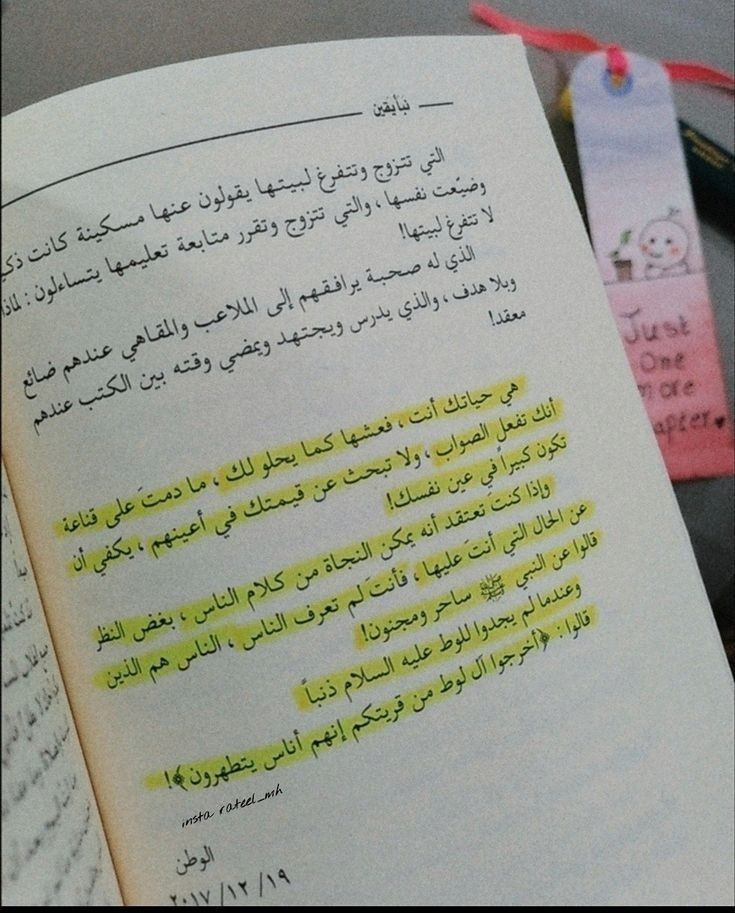 نَبَأيَقين
التي تتزوج وتتفرغ لبيتها يقولون عنها مسكينة كانت
وضيّعت نفسها، والتي تتزوج وتقرر متابعة تعليمها يتساءلون : لماذا
لا تتفرغ لبيتها!
الذي له صحبة يرافقهم إلى الملاعب والمقاهي عندهم ضائع
وبلا هدف، والذي يدرس ويجتهد ويمضي وقته بين الكتب عندهم
معقد!
هي حياتك أنت، فعشها كما يحلو لك، ما دمتَ على قناعة
أنك تفعل الصواب، ولا تبحث عن قيمتك في أعينهم، يكفي أن
تكون كبيراً في عين نفسك!
وإذا كنتَ تعتقد أنه يمكن النجاة من كلام الناس، بغض النظر
عن الحال التي أنتَ عليها، فأنتَ لم تعرف الناس، الناس هم الذين
قالوا عن النبي ﷺ ساحر ومجنون!
وعندما لم يجدوا للوط عليه السلام ذنباً
قالوا: ﴿أخرجوا آل لوط من قريتكم إنهم أناس يتطهرون﴾!
insta rateel_mh
الوطن
٢٠١٧/١٢/١٩
Just
One
more
chapter